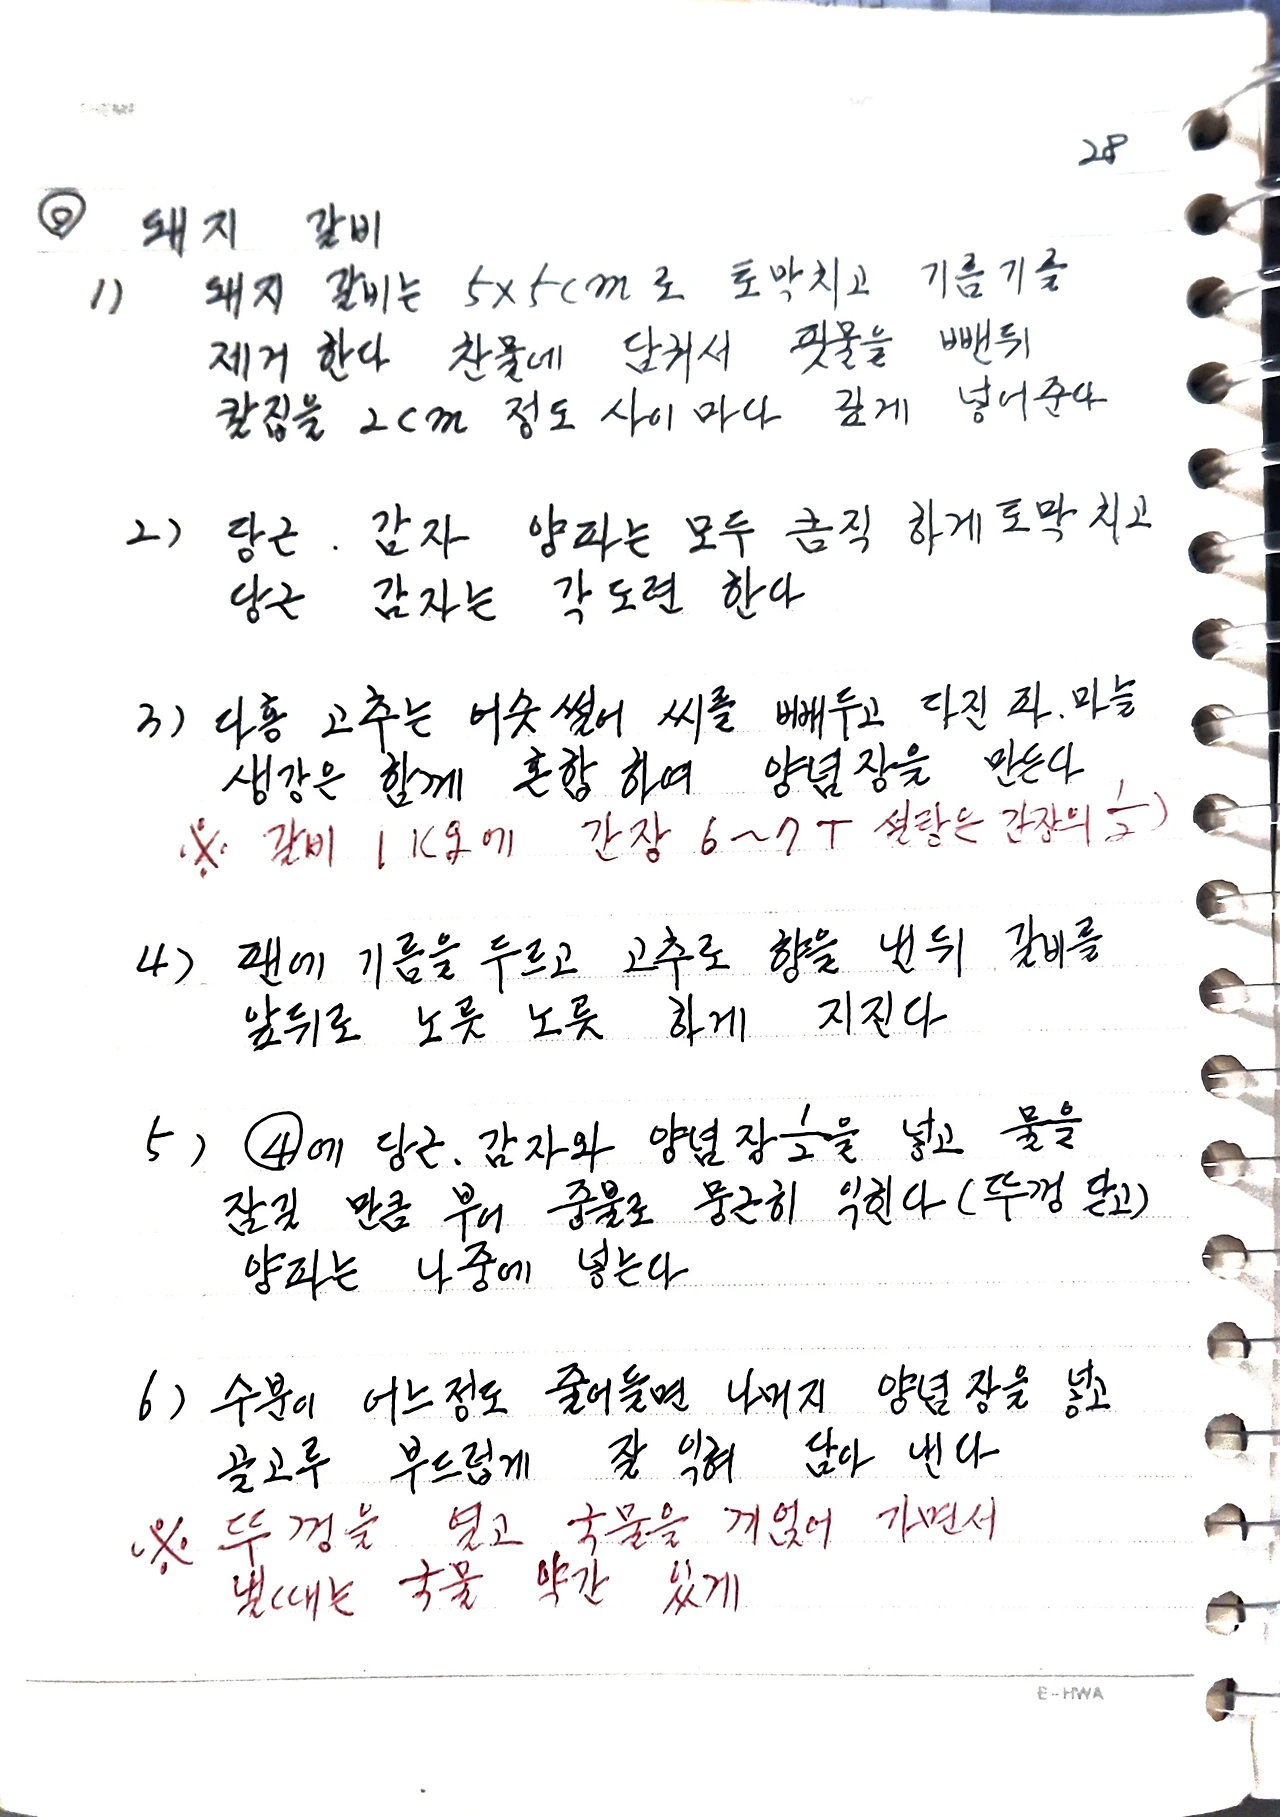 28
◎ 돼지 갈비
1) 돼지 갈비는 5x5cm로 토막치고 기름기를
제거 한다 찬물에 담궈서 핏물을 뺀뒤
칼집을 2cm 정도 사이 마다 깊게 넣어준다
2) 당근 . 감자 양파는 모두 큼직 하게 토막 치고
당근 감자는 각 도련 한다
3) 다홍 고추는 어슷썰어 씨를 빼두고 다진 파.마늘
생강은 함께 혼합 하여 양념장을 만든다
※ 갈비 1K음에 간장 6~7T 설탕은 간장의 1/2)
4) 팬에 기름을 두르고 고추로 향을 낸뒤 갈비를
앞뒤로 노릇 노릇 하게 지진다
5) ④에 당근.감자와 양념장 1/2을 넣고 물을
잠길 만큼 부어 중불로 뭉근히 익힌다 (뚜껑 닫고)
양파는 나중에 넣는다
6) 수분이 어느정도 줄어들면 나머지 양념장을 넣고
골고루 부드럽게 잘 익혀 담아 낸다
※ 뚜껑을 열고 국물을 껴얹어 가면서
낼때는 국물 약간 있게
E-HWA